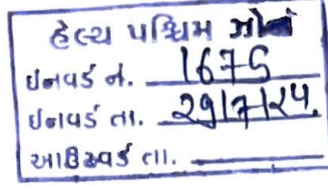 હેલ્થ પશ્ચિમ ઝોન
ઇનવર્ડ નં. 1676
ઇનવર્ડ તા. 29/7/૨૫.
આઉટવર્ડ તા.